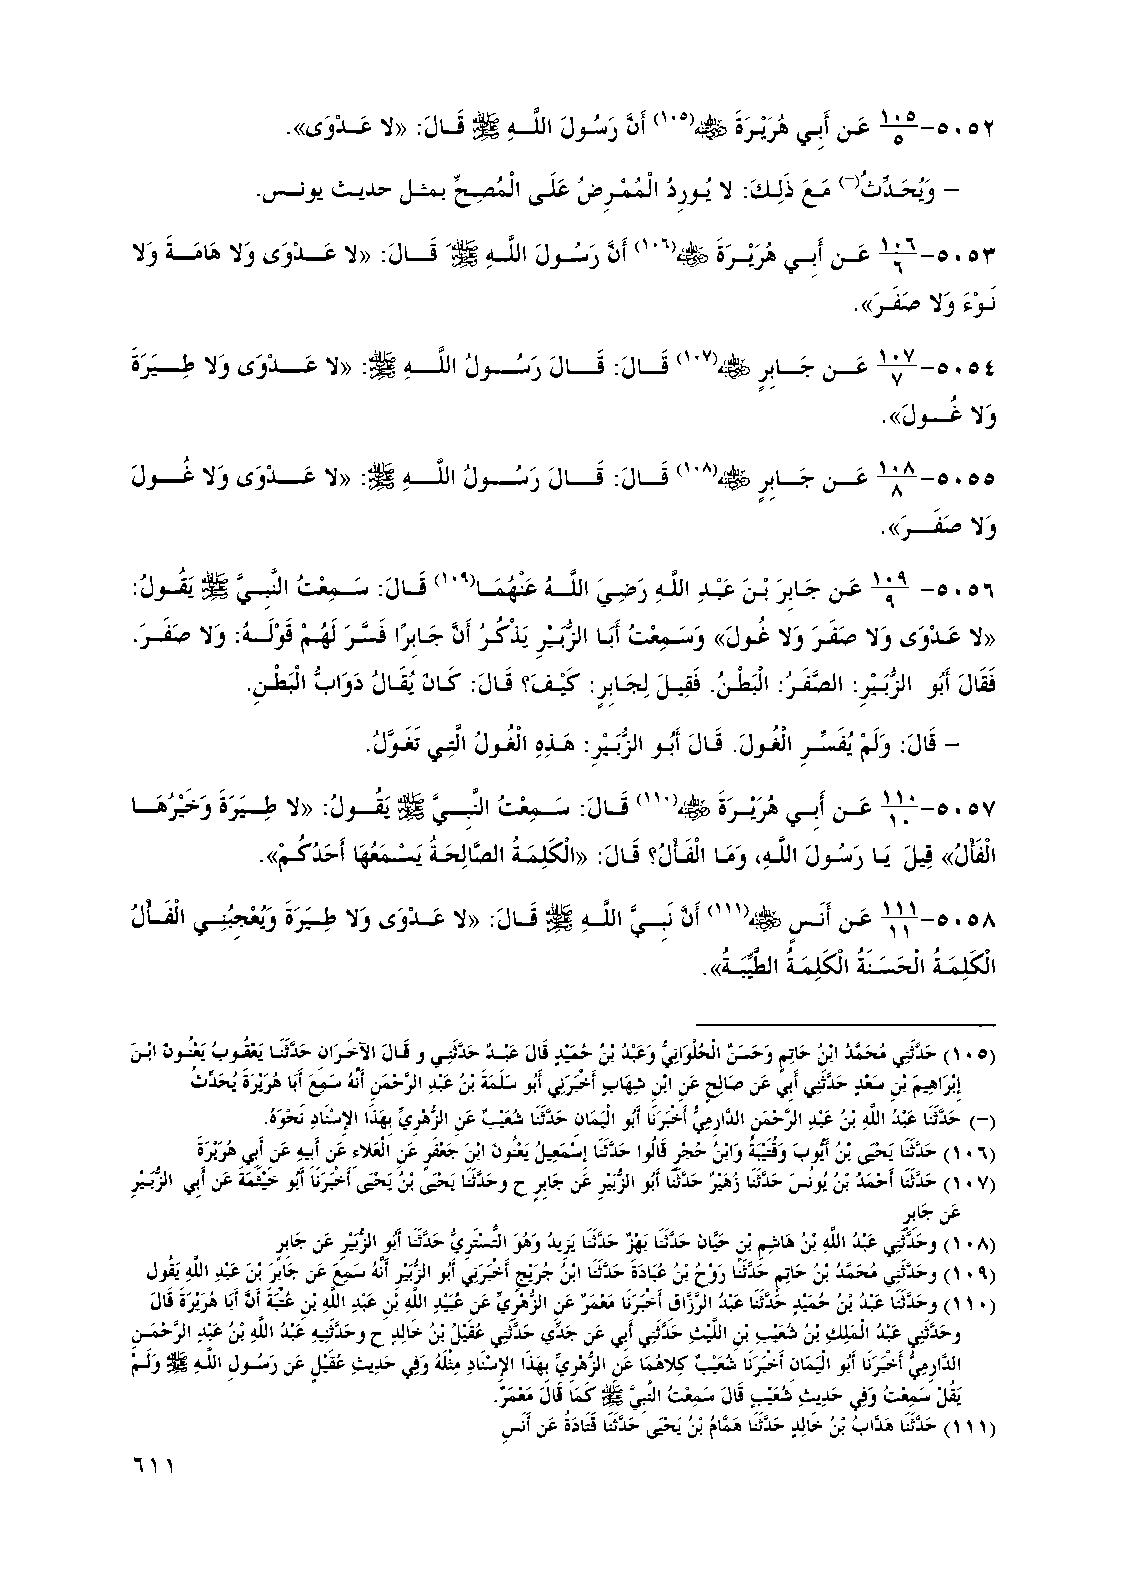 ٥٠٥٢-١٠٥/٥ عَن أَبِي هُرَيْرَةَ ﷺ(١٠٥) أَنَّ رَسُولَ اللهِ ﷺ قَالَ: «لا عَدْوَى».
– وَيُحَدِّثُ(–) مَعَ ذَلِكَ: لا يُورِدُ الْمُمْرِضُ عَلَى الْمُصِحِّ بمثل حديث يونس.
٥٠٥٣-١٠٦/٦ عَن أَبِي هُرَيْرَةَ ﷺ(١٠٦) أَنَّ رَسُولَ اللهِ ﷺ قَالَ: «لا عَدْوَى وَلا هَامَةَ وَلا
نَوْءَ وَلا صَفَرَ».
٥٠٥٤-١٠٧/٧ عَن جَابِرٍ ﷺ(١٠٧) قَالَ: قَالَ رَسُولُ اللهِ ﷺ: «لا عَدْوَى وَلا طِيَرَةَ
وَلا غُولَ».
٥٠٥٥-١٠٨/٨ عَن جَابِرٍ ﷺ(١٠٨) قَالَ: قَالَ رَسُولُ اللهِ ﷺ: «لا عَدْوَى وَلا غُولَ
وَلا صَفَرَ».
٥٠٥٦-١٠٩/٩ عَن جَابِرَ بْنَ عَبْدِ اللهِ رَضِيَ اللهُ عَنْهُمَا(١٠٩) قَالَ: سَمِعْتُ النَّبِيَّ ﷺ يَقُولُ:
«لا عَدْوَى وَلا صَفَرَ وَلا غُولَ» وَسَمِعْتُ أَبَا الزُّبَيْرِ يَذْكُرُ أَنَّ جَابِرًا فَسَّرَ لَهُمْ قَوْلَهُ: وَلا صَفَرَ.
فَقَالَ أَبُو الزُّبَيْرِ: الصَّفَرُ: الْبَطْنُ. فَقِيلَ لِجَابِرٍ: كَيْفَ؟ قَالَ: كَانَ يُقَالُ دَوَابُّ الْبَطْنِ.
– قَالَ: وَلَمْ يُفَسِّرِ الْغُولَ. قَالَ أَبُو الزُّبَيْرِ: هَذِهِ الْغُولُ الَّتِي تَغَوَّلُ.
٥٠٥٧-١١٠/١٠ عَن أَبِي هُرَيْرَةَ ﷺ(١١٠) قَالَ: سَمِعْتُ النَّبِيَّ ﷺ يَقُولُ: «لا طِيَرَةَ وَخَيْرُهَا
الْفَأْلُ» قِيلَ يَا رَسُولَ اللهِ، وَمَا الْفَأْلُ؟ قَالَ: «الْكَلِمَةُ الصَّالِحَةُ يَسْمَعُهَا أَحَدُكُمْ».
٥٠٥٨-١١١/١١ عَن أَنَسٍ ﷺ(١١١) أَنَّ نَبِيَّ اللهِ ﷺ قَالَ: «لا عَدْوَى وَلا طِيَرَةَ وَيُعْجِبُنِي الْفَأْلُ
الْكَلِمَةُ الْحَسَنَةُ الْكَلِمَةُ الطَّيِّبَةُ».
(١٠٥) حَدَّثَنِي مُحَمَّدُ ابْنُ حَاتِمٍ وَحَسَنٌ الْحُلْوَانِيُّ وَعَبْدُ بْنُ حُمَيْدٍ قَالَ عَبْدٌ حَدَّثَنِي و قَالَ الآخَرَانِ حَدَّثَنَا يَعْقُوبُ يَعْنُونَ ابْنَ
إِبْرَاهِيمَ بْنِ سَعْدٍ حَدَّثَنِي أَبِي عَن صَالِحٍ عَنِ ابْنِ شِهَابٍ أَخْبَرَنِي أَبُو سَلَمَةَ بْنُ عَبْدِ الرَّحْمَنِ أَنَّهُ سَمِعَ أَبَا هُرَيْرَةَ يُحَدِّثُ
(–) حَدَّثَنَا عَبْدُ اللهِ بْنُ عَبْدِ الرَّحْمَنِ الدَّارِمِيُّ أَخْبَرَنَا أَبُو الْيَمَانِ حَدَّثَنَا شُعَيْبٌ عَنِ الزُّهْرِيِّ بِهَذَا الإِسْنَادِ نَحْوَهُ.
(١٠٦) حَدَّثَنَا يَحْيَى بْنُ أَيُّوبَ وَقُتَيْبَةُ وَابْنُ حُجْرٍ قَالُوا حَدَّثَنَا إِسْمَعِيلُ يَعْنُونَ ابْنَ جَعْفَرٍ عَنِ الْعَلاءِ عَن أَبِيهِ عَن أَبِي هُرَيْرَةَ
(١٠٧) حَدَّثَنَا أَحْمَدُ بْنُ يُونُسَ حَدَّثَنَا زُهَيْرٌ حَدَّثَنَا أَبُو الزُّبَيْرِ عَن جَابِرٍ ح وحَدَّثَنَا يَحْيَى بْنُ يَحْيَى أَخْبَرَنَا أَبُو خَيْثَمَةَ عَن أَبِي الزُّبَيْرِ
عَن جَابِرٍ
(١٠٨) وحَدَّثَنِي عَبْدُ اللهِ بْنُ هَاشِمِ بْنِ حَيَّانَ حَدَّثَنَا بَهْزٌ حَدَّثَنَا يَزِيدُ وَهُوَ التُّسْتَرِيُّ حَدَّثَنَا أَبُو الزُّبَيْرِ عَن جَابِرٍ
(١٠٩) وحَدَّثَنِي مُحَمَّدُ بْنُ حَاتِمٍ حَدَّثَنَا رَوْحُ بْنُ عُبَادَةَ حَدَّثَنَا ابْنُ جُرَيْجٍ أَخْبَرَنِي أَبُو الزُّبَيْرِ أَنَّهُ سَمِعَ عَن جَابِرَ بْنَ عَبْدِ اللهِ يَقُول
(١١٠) وحَدَّثَنَا عَبْدُ بْنُ حُمَيْدٍ حَدَّثَنَا عَبْدُ الرَّزَّاقِ أَخْبَرَنَا مَعْمَرٌ عَنِ الزُّهْرِيِّ عَن عُبَيْدِ اللهِ بْنِ عَبْدِ اللهِ بْنِ عُتْبَةَ أَنَّ أَبَا هُرَيْرَةَ قَالَ
وحَدَّثَنِي عَبْدُ الْمَلِكِ بْنُ شُعَيْبِ بْنِ اللَّيْثِ حَدَّثَنِي أَبِي عَن جَدِّي حَدَّثَنِي عُقَيْلُ بْنُ خَالِدٍ ح وحَدَّثَنِيهِ عَبْدُ اللهِ بْنُ عَبْدِ الرَّحْمَنِ
الدَّارِمِيُّ أَخْبَرَنَا أَبُو الْيَمَانِ أَخْبَرَنَا شُعَيْبٌ كِلاهُمَا عَنِ الزُّهْرِيِّ بِهَذَا الإِسْنَادِ مِثْلَهُ وَفِي حَدِيثِ عُقَيْلٍ عَن رَسُولِ اللهِ ﷺ وَلَمْ
يَقُلْ سَمِعْتُ وَفِي حَدِيثِ شُعَيْبٍ قَالَ سَمِعْتُ النَّبِيَّ ﷺ كَمَا قَالَ مَعْمَرٌ.
(١١١) حَدَّثَنَا هَدَّابُ بْنُ خَالِدٍ حَدَّثَنَا هَمَّامُ بْنُ يَحْيَى حَدَّثَنَا قَتَادَةُ عَن أَنَسٍ
٦١١